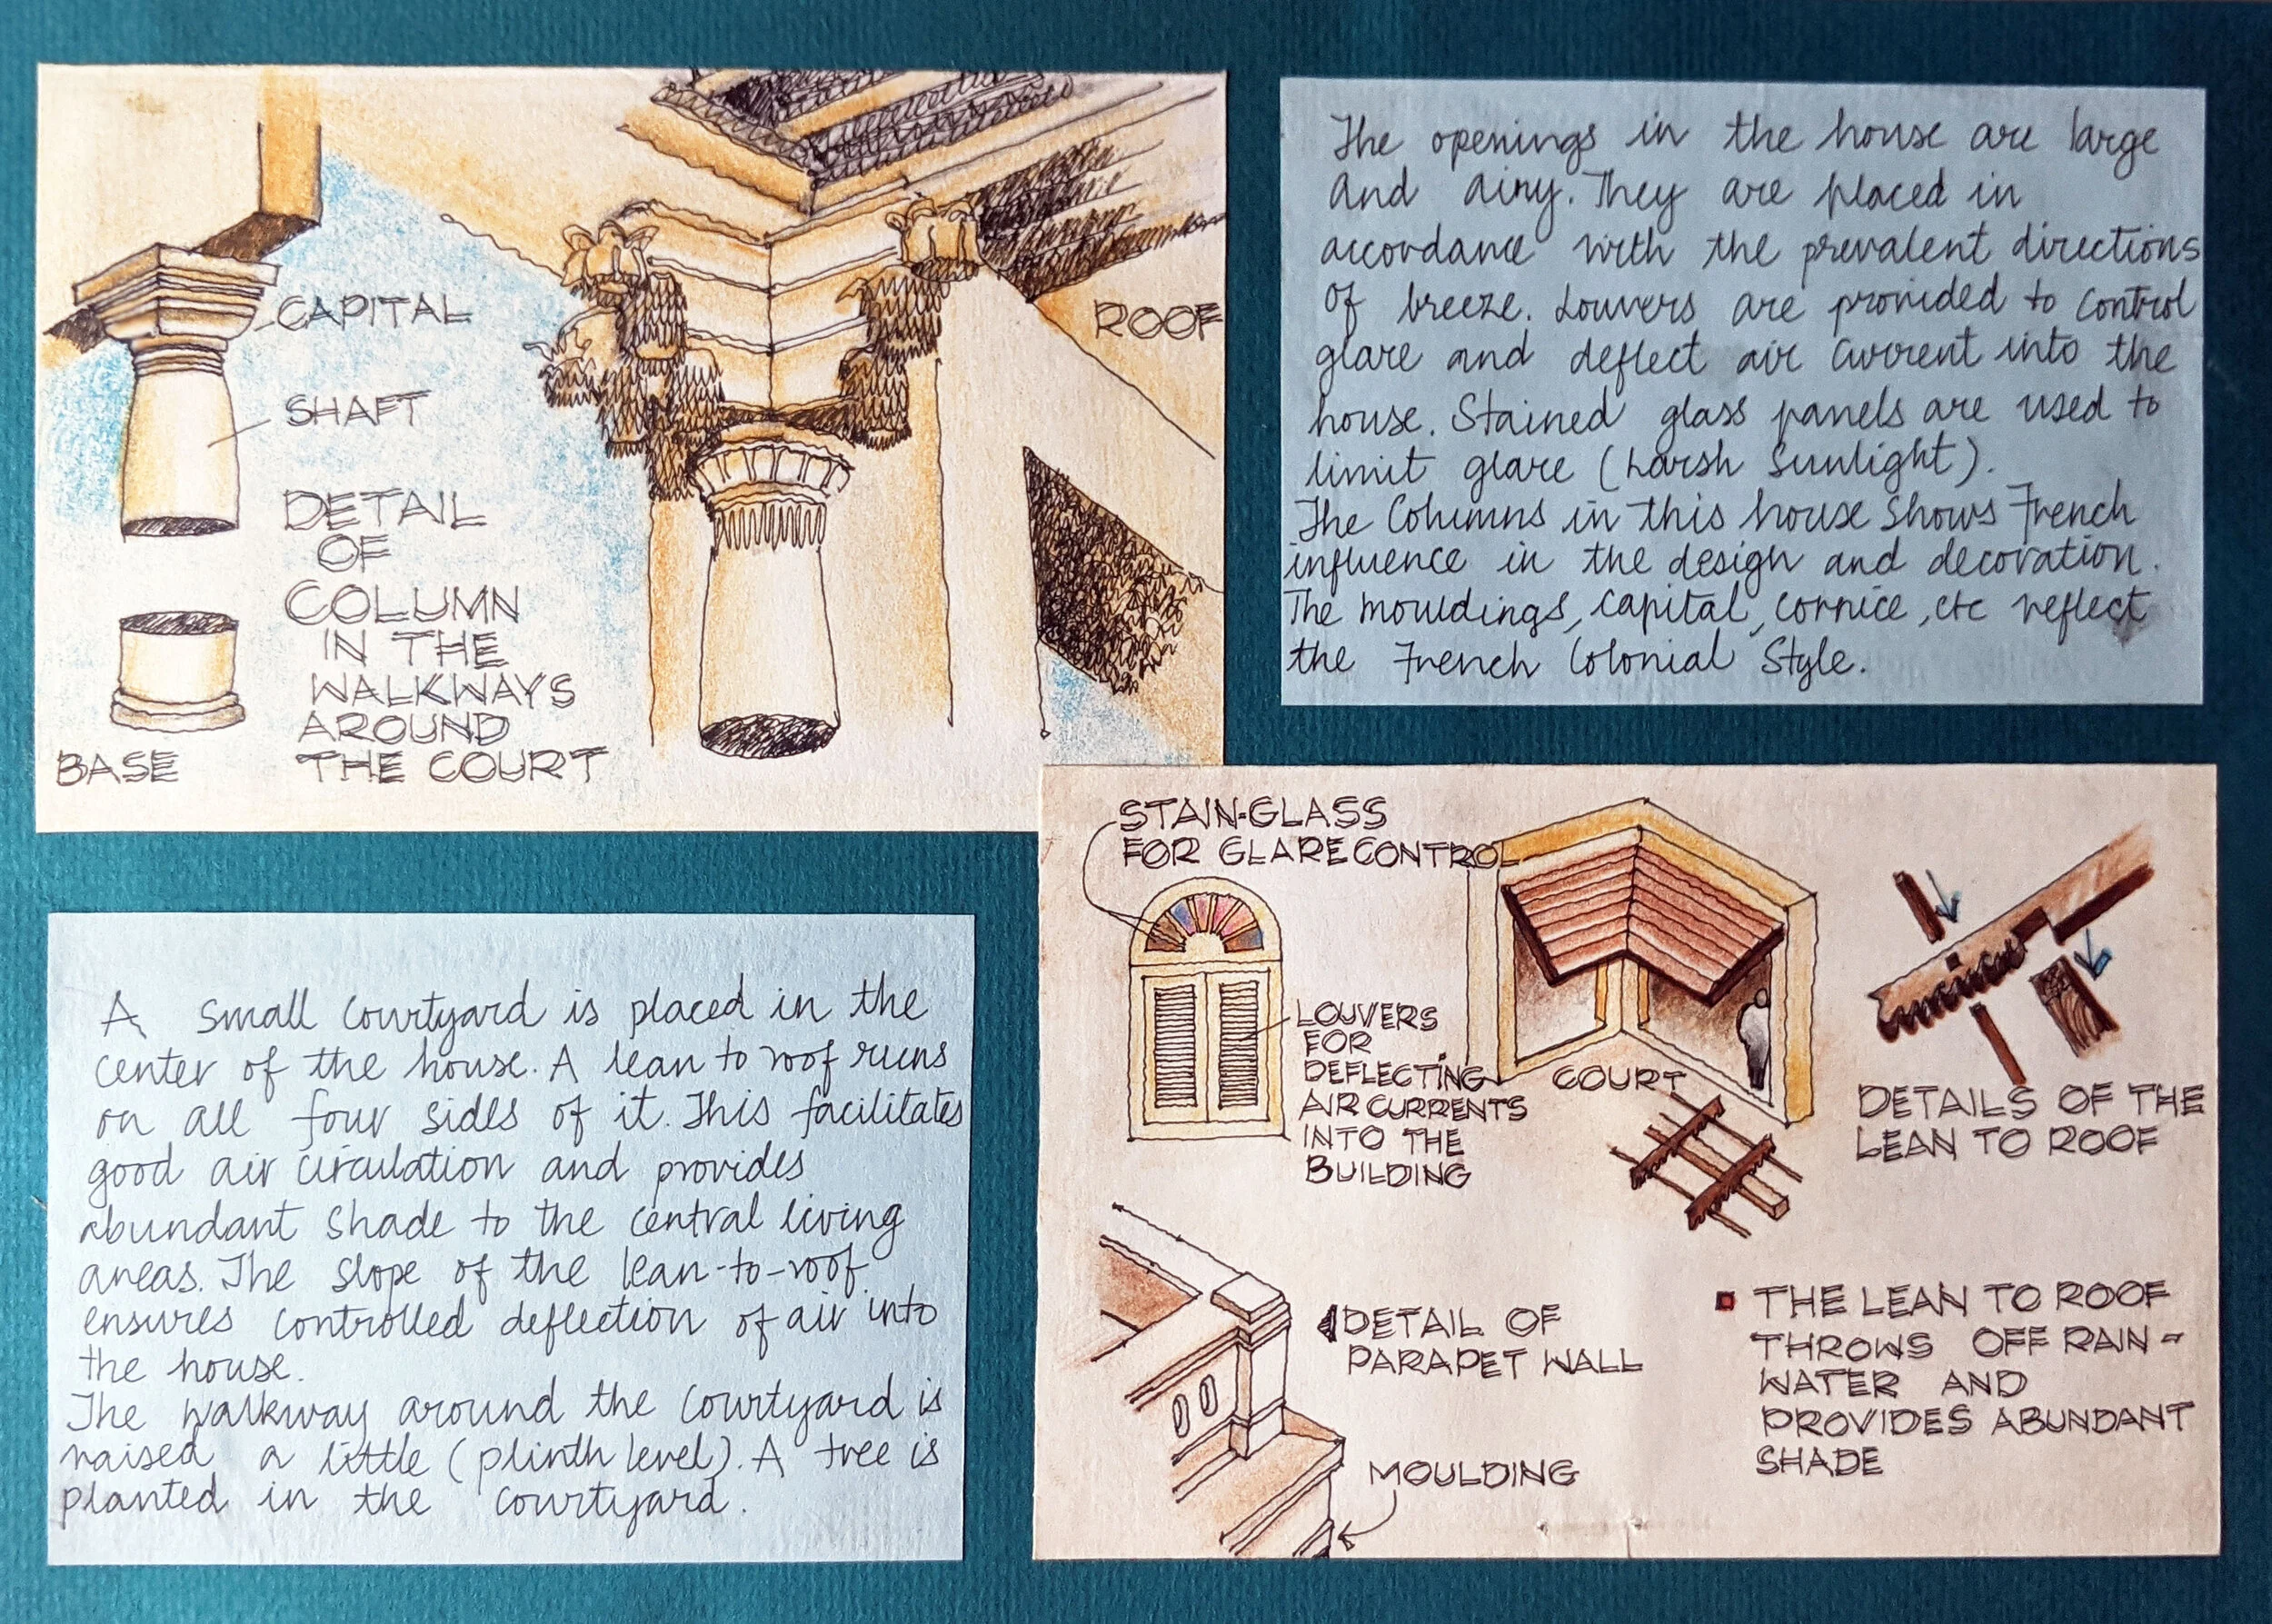 CAPITAL
SHAFT
DETAIL
OF
COLUMN
IN THE
WALKWAYS
AROUND
THE COURT
BASE
ROOF
The openings in the house are large
and airy. They are placed in
accordance with the prevalent directions
of breeze. Louvers are provided to control
glare and deflect air current into the
house. Stained glass panels are used to
limit glare (harsh sunlight).
The Columns in this house shows French
influence in the design and decoration.
The mouldings, capital, cornice, etc reflect
the French Colonial Style.
A small courtyard is placed in the
center of the house. A lean to roof runs
on all four sides of it. This facilitates
good air circulation and provides
abundant shade to the central living
areas. The slope of the lean-to-roof
ensures controlled deflection of air into
the house.
The walkway around the courtyard is
raised a little (plinth level). A tree is
planted in the courtyard.
STAIN-GLASS
FOR GLARE CONTROL
LOUVERS
FOR
DEFLECTING
AIR CURRENTS
INTO THE
BUILDING
COURT
DETAILS OF THE
LEAN TO ROOF
DETAIL OF
PARAPET WALL
MOULDING
THE LEAN TO ROOF
THROWS OFF RAIN-
WATER AND
PROVIDES ABUNDANT
SHADE